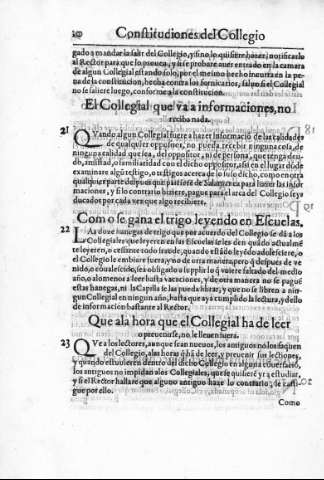 20 Constituciones del Collegio
gado a mandar le salir del Collegio, y si no lo quisiere hazer, notificarlo
al Rector para que lo prouea, y si se prouare auer entrado en la camara
de algun Collegial estando solo, por el mesmo hecho incurra en la pe-
na de la constitucion, hecha contra los fornicarios, salvo si el Collegial
no saliere luego, conforme a la constitucion.
El Collegial que va a informaciones, no
reciba nada.
21 QVando algun Collegial fuere a hazer informaciō de la calidad
de qualquier oppositor, no pueda recebir ninguna cosa, de
ninguna calidad que sea, del oppositor, ni de persona, que tenga deu-
do, amistad, o familiaridad con el dicho oppositor, assi en el lugar dōde
examinare algū testigo, o testigos acerca de lo suso dicho, como en otra
qualquier parte despues que partiere de Salamanca para hazer las infor-
maciones, y si lo contrario hiziere, pague para el arca del Collegio seys
ducados por cada vez que algo recibiere.
Como se gana el trigo leyendo en Escuelas.
22 LAs doze hanegas de trigo que por acuerdo del Collegio se dā a los
Collegiales que leyeren en las Escuelas se les den quādo actualmē
te leyeren, o cessaren todo fraude, quando estādo leyēdo adolesciere, o
el Collegio le embiare fuera, y no de otra manera, pero q̄ despues de ve
nido, o conualescido, sea obligado a supplir lo q̄ vuiere faltado del mesmo
año, o alomenos a leer hasta vacaciones, y de otra manera no se pague
estas hanegas, ni la Capilla se las pueda librar, y que no se libren a nin-
gun Collegial en ningun año, hasta que aya cumplido la lectura, y dello
de informacion bastante al Rector.
Que a la hora que el Collegial ha de leer
o preuenirse, no le lleuen fuera.
23 QVe a los lectores, aun que sean nueuos, los antiguos no los saquen
del Collegio, a las horas q̄ hā de leer, y preuenir sus lectiones,
y quando estuuieren dentro del dicho Collegio en alguna conuersaciō,
los antiguos no impidan a los Collegiales, que se quisierē yr a estudiar,
y si el Rector hallare que alguno antiguo haze lo contrario, le casti-
gue por ello.
Como